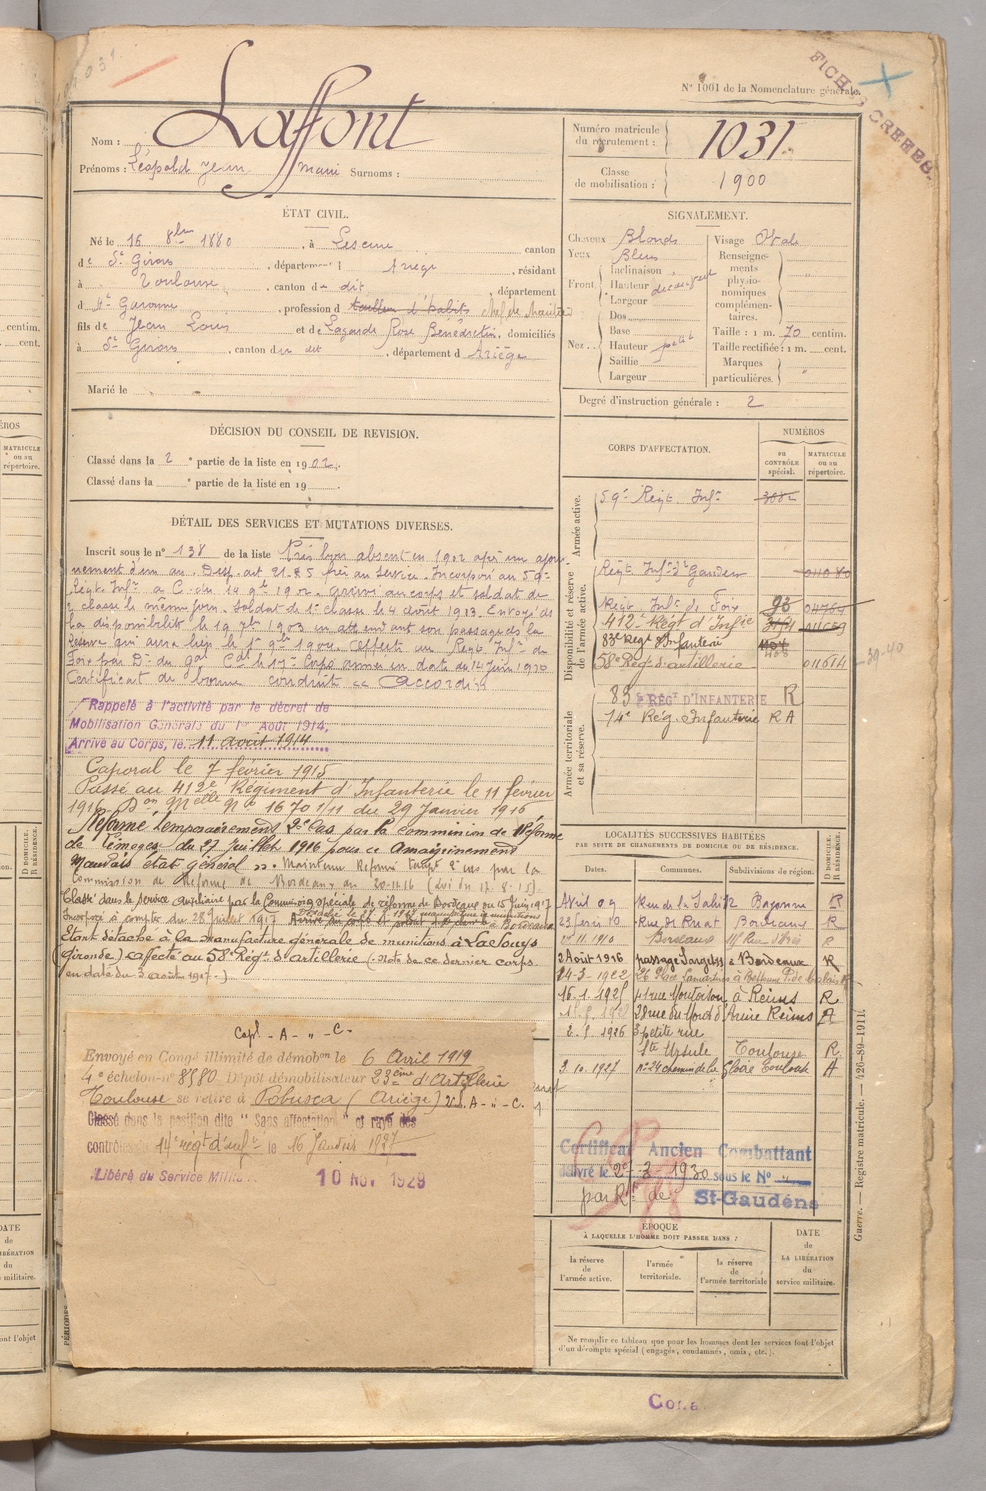 N° 1001 de la Nomenclature générale.
FICHES CREEES.
Nom : Laffont
Prénoms : Léopold Jean Marie Surnoms :
Numéro matricule du recrutement : 1031
Classe de mobilisation : 1900
ÉTAT CIVIL.
Né le 16 8bre 1880, à Lescure canton
de St Girons, département d Ariège, résidant
à Toulouse, canton du dit, département
d Hte Garonne, profession d tailleur d'habits
fils de Jean Louis et de Lagarde Rose Bénédictine, domiciliés
à St Girons, canton du dit, département d Ariège
Marié le
SIGNALEMENT.
Cheveux Blonds
Yeux Bleus
Front : Inclinaison
Hauteur découvert
Largeur
Nez : Dos
Base
Hauteur petit
Saillie
Largeur
Visage Ovale
Renseignements physionomiques complémentaires.
Taille : 1 m. 70 centim.
Taille rectifiée : 1 m. cent.
Marques particulières.
Degré d'instruction générale : 2
DÉCISION DU CONSEIL DE REVISION.
Classé dans la 2e partie de la liste en 1902.
Classé dans la e partie de la liste en 19
DÉTAIL DES SERVICES ET MUTATIONS DIVERSES.
Inscrit sous le n° 138 de la liste Pris bon absent en 1902 après un ajour-
nement d'un an. Disp. art 21. Incorporé au 59e
Régt Infie à C. du 14 9bre 1902. Arrivé au corps et soldat de
2e classe le même jour. Soldat de 1e classe le 4 août 1903. Envoyé ds
la disponibilité le 19 7bre 1903 en attendant son passage ds la
Réserve qui aura lieu le 1er 9bre 1904. Affecté au Régt Infie de
Foix par Don du Gal Cdt le 17e Corps d'armée en date du 14 Juin 1910
Certificat de bonne conduite "Accordé"
Rappelé à l'activité par le décret de
Mobilisation Générale du 1er Août 1914,
Arrivé au Corps, le 11 août 1914
Caporal le 7 février 1915
Passé au 412e Régiment d'Infanterie le 11 février
1916 Don Melle No 1670 1/11 du 29 Janvier 1916
Réformé temporairement 2e cas par la commission de Réforme
de Limoges du 27 Juillet 1916 pour "Amaigrissement
Mauvais état général". Maintenu Réformé tempre 2e cas par la
Commission de Réforme de Bordeaux du 20-12-16 (Loi du 17-8-15).
Classé dans le service auxiliaire par la Commission spéciale de réforme de Bordeaux du 15 Juin 1917
Incorporé à compter du 28 Juillet 1917
Etant détaché à la manufacture générale de munitions à La Souys
(Gironde) affecté au 58e Régt d'artillerie (Note de ce dernier corps
en date du 3 août 1917.)
Capl - A - " - C -
Envoyé en Congé illimité de démobon le 6 Avril 1919
4e échelon n° 8580 Dépôt démobilisateur 23ème d'Artillerie
Toulouse se retire à Sobusca (Ariège)
Classé dans la position dite "Sans affectation" et rayé des
contrôles 14e regt d'infie le 16 Janvier 1927
Libéré du Service Militaire
10 NOV 1929
CORPS D'AFFECTATION.
NUMÉROS
au CONTRÔLE spécial.
MATRICULE ou au répertoire.
Armée active.
59e Régt Infie
Disponibilité et réserve de l'armée active.
Régt Infie St Gaudens
Régt Infie de Foix 93
412e Régt d'Infie
83e Regt d'Infanterie
58e Régt d'artillerie 011614
39-40
Armée territoriale et sa réserve.
83e RÉGt D'INFANTERIE R
14e Rég. Infanterie R A
LOCALITÉS SUCCESSIVES HABITÉES
PAR SUITE DE CHANGEMENTS DE DOMICILE OU DE RÉSIDENCE.
Dates. Communes. Subdivisions de région. D DOMICILE. R RÉSIDENCE.
Avril 09 Bayonne R
Bordeaux R
Bordeaux R
2 Août 1916 passage à Bordeaux R
14-3-1922 26 Place Lamartine à Béthune P. de Calais R
16.1.1925 à Reims R
Reims A
2.9.1926 3 petite rue
Ste Ursule Toulouse R.
2.10.1927 n° 24 chemin de la Gloire Toulouse A
Certificat Ancien Combattant
délivré le 2-3-1930 sous le N°
par Rt de St-Gaudens
ÉPOQUE
À LAQUELLE L'HOMME DOIT PASSER DANS :
la réserve de l'armée active.
l'armée territoriale.
la réserve de l'armée territoriale
DATE de LA LIBÉRATION du service militaire.
Ne remplir ce tableau que pour les hommes dont les services font l'objet
d'un décompte spécial (engagés, condamnés, omis, etc.).
Guerre. — Registre matricule. — 426-89-1911.